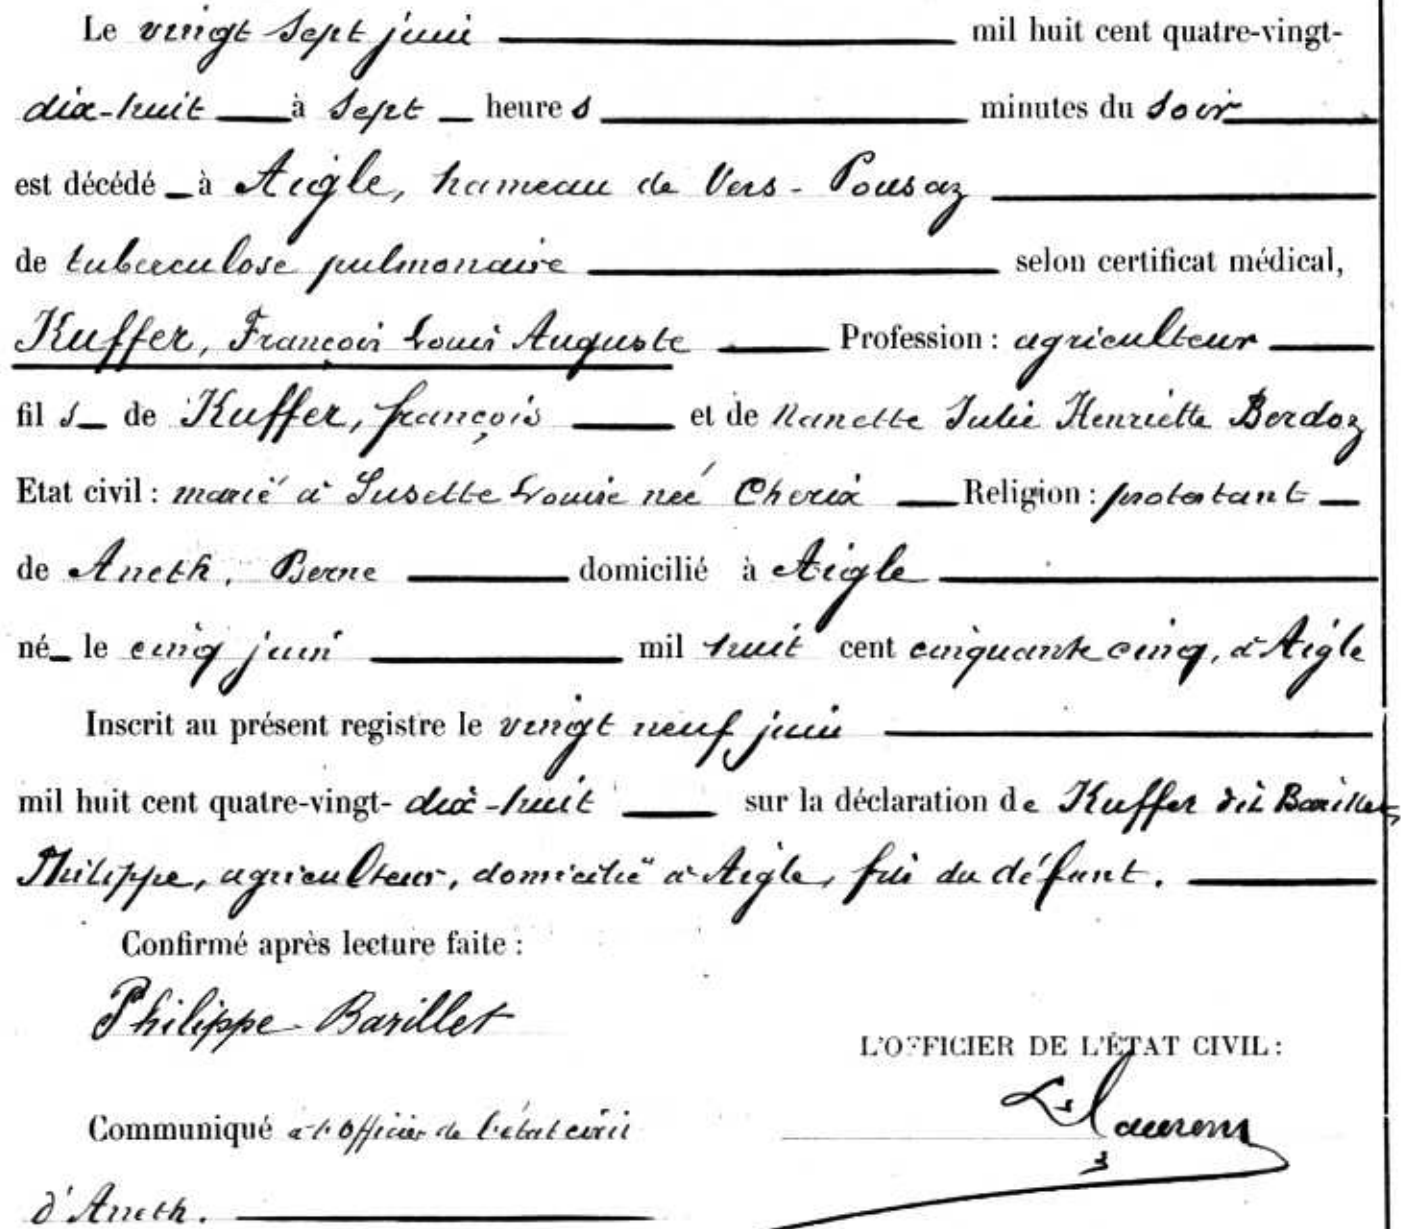 Le vingt sept juin mil huit cent quatre-vingt-
dix-huit à sept heures minutes du soir
est décédé à Aigle, hameau de Vers-Pousaz
de tuberculose pulmonaire selon certificat médical,
Kuffer, François Louis Auguste Profession : agriculteur
fils de Kuffer, françois et de Nanette Julie Henriette Berdoz
Etat civil : marié à Susette Louise neé Cherix Religion : protestant
de Aneth, Berne domicilié à Aigle
né le cinq juin mil huit cent cinquante cinq, à Aigle
Inscrit au présent registre le vingt neuf juin
mil huit cent quatre-vingt- dix-huit sur la déclaration de Kuffer dit Barillet,
Philippe, agriculteur, domicilié à Aigle, fils du défunt.
Confirmé après lecture faite :
Philippe Barillet
L'OFFICIER DE L'ÉTAT CIVIL :
Communiqué à l'officier de l'état civil
d'Aneth.